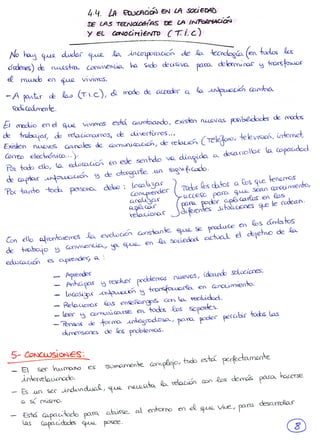 4.4. LA EDUCACIÓN EN LA SOCIEDAD
DE LAS TECNOLOGÍAS DE LA INFORMACIÓN
Y EL CONOCIMIENTO (T.I.C.)
No hay que dudar que la incorporación de la tecnología (en todos los
órdenes) de nuestra convivencia ha sido decisiva para determinar y transformar
el mundo en que vivimos.
- A partir de las (T.I.C), el modo de acceder a la información cambia
radicalmente.
El medio en el que vivimos está cambiando, existen nuevas posibilidades de modos
de trabajar, de relacionarnos, de divertirnos...
Existen nuevos canales de comunicación, de relación (Teléfono, televisión, internet
correo electrónico...).
Por todo ello, la educación en este sentido va dirigida a desarrollar la capacidad
de captar información y de otorgarle un significado.
Por tanto toda persona debe:
localizar
comprender
analizar
aplicar
relacionar
Todos los datos a los que tenemos
acceso para que sean conocimiento,
para poder aplicarlos en las
diferentes situaciones que le rodean.
Con ello afrontaremos la evolución constante que se produce en los ámbitos
de trabajo y convivencia, ya que en la sociedad actual el objetivo de la
educación es aprender a:
- Aprender
- Anticipar y resolver problemas nuevos, ideando soluciones.
- Localizar información y transformarla en conocimiento.
- Relacionar las enseñanzas con la realidad.
- Leer y comunicarse en todos los soportes.
- Pensar de forma integradora, para poder percibir todas las
dimensiones de los problemas.
5- CONCLUSIONES:
- El ser humano es sumamente complejo, todo está perfectamente
interrelacionado.
- Es un ser individual, que necesita la relación con los demás para hacerse
a sí mismo.
- Está capacitado para abrirse al entorno en el que vive, para desarrollar
las capacidades que posee.
8